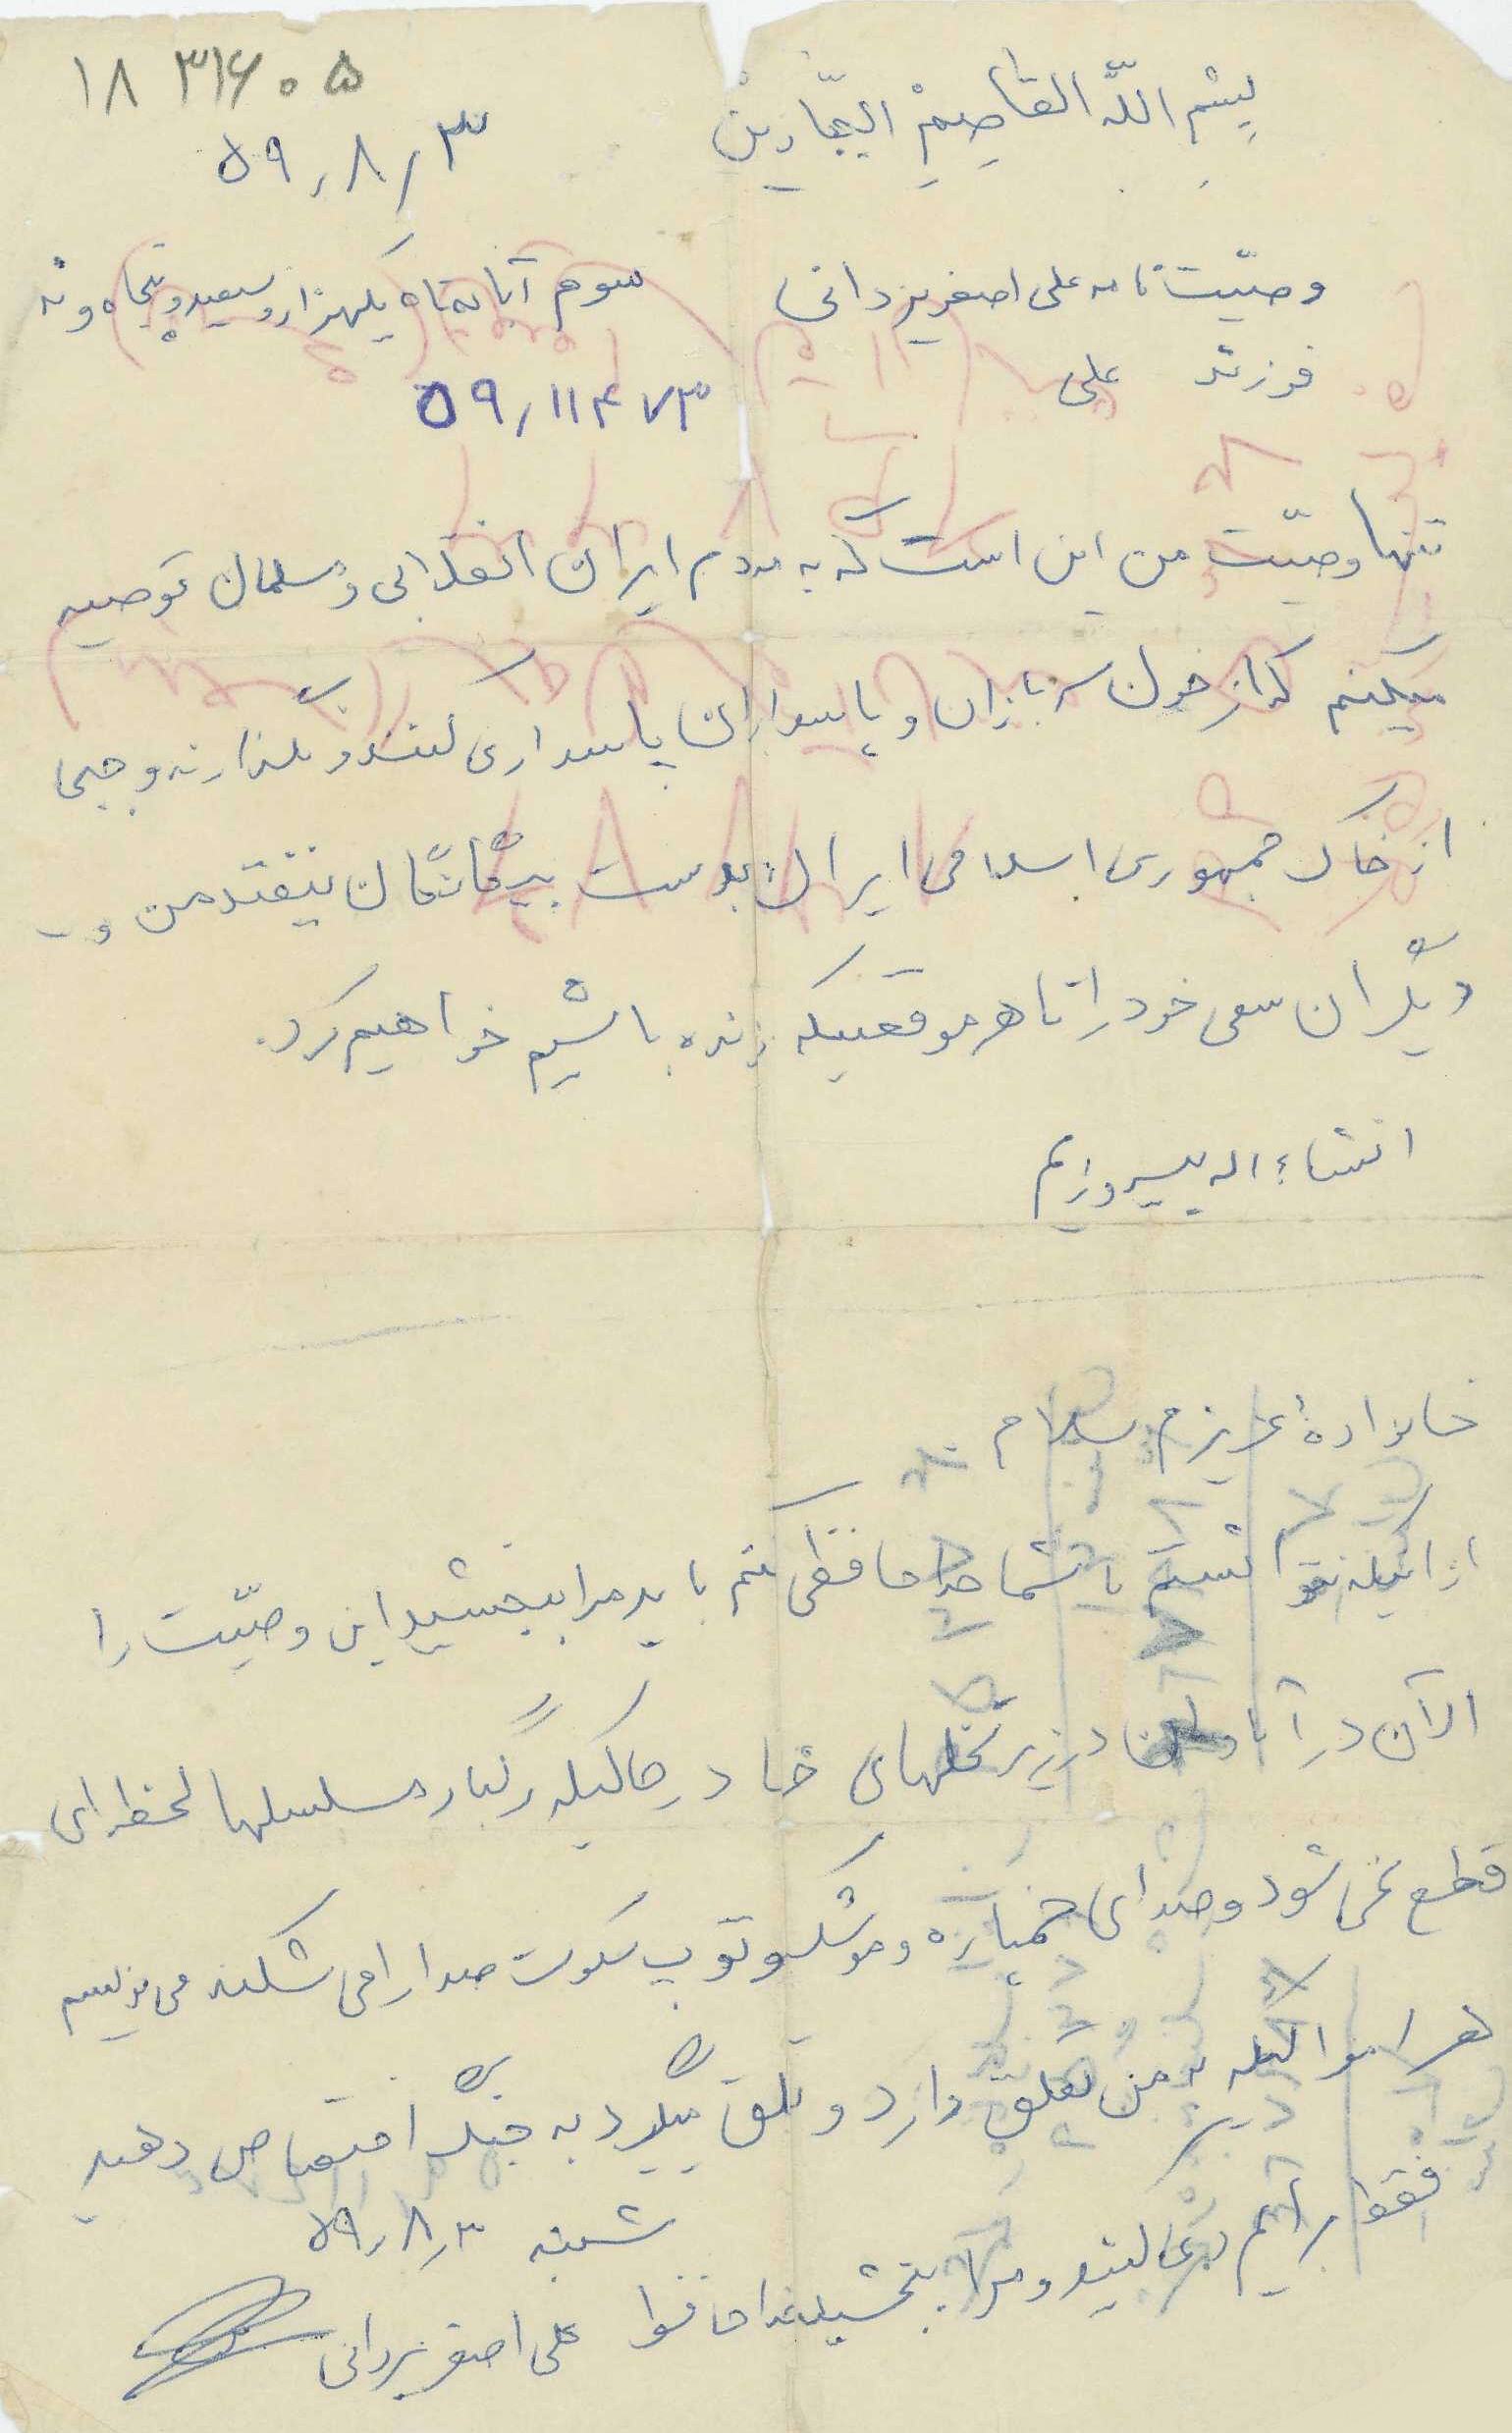 ۱۸ ۳۱۶۰۵
بِسْمِ اللّه القاصِمِ الجبّارین
۵۹٫۸٫۳
وصیّت نامه علی اصغر یزدانی
سوم آبانماه یکهزار و سیصد و پنجاه و نه
فرزند علی
۵۹٫۱۱۴۷۳
تنها وصیّت من این است که به مردم ایران انقلابی و مسلمان توصیه
میکنم که از خون سربازان و پاسداران پاسداری کنند و نگذارند وجبی
از خاک جمهوری اسلامی ایران بدست بیگانگان بیفتد من و
دیگران سعی خود را تا هر موقعیکه زنده باشیم خواهیم کرد.
انشاءاله پیروزیم
خانوادهٔ عزیزم سلام
از اینکه نتوانستم با شما خداحافظی کنم باید مرا ببخشید این وصیّت را
الآن در آبادان در زیر نخلهای خا در حالیکه رگبار مسلسلها لحظه‌ای
قطع نمی‌شود و صدای خمپاره و موشک و توپ سکوت صدا را می‌شکند می‌نویسم
هر اموالیکه به من تعلق دارد و تعلق میگیرد به جنگ اختصاص دهید
فقط برایم دعا کنید و مرا ببخشید خداحافظ
شنبه ۵۹٫۸٫۳
علی اصغر یزدانی